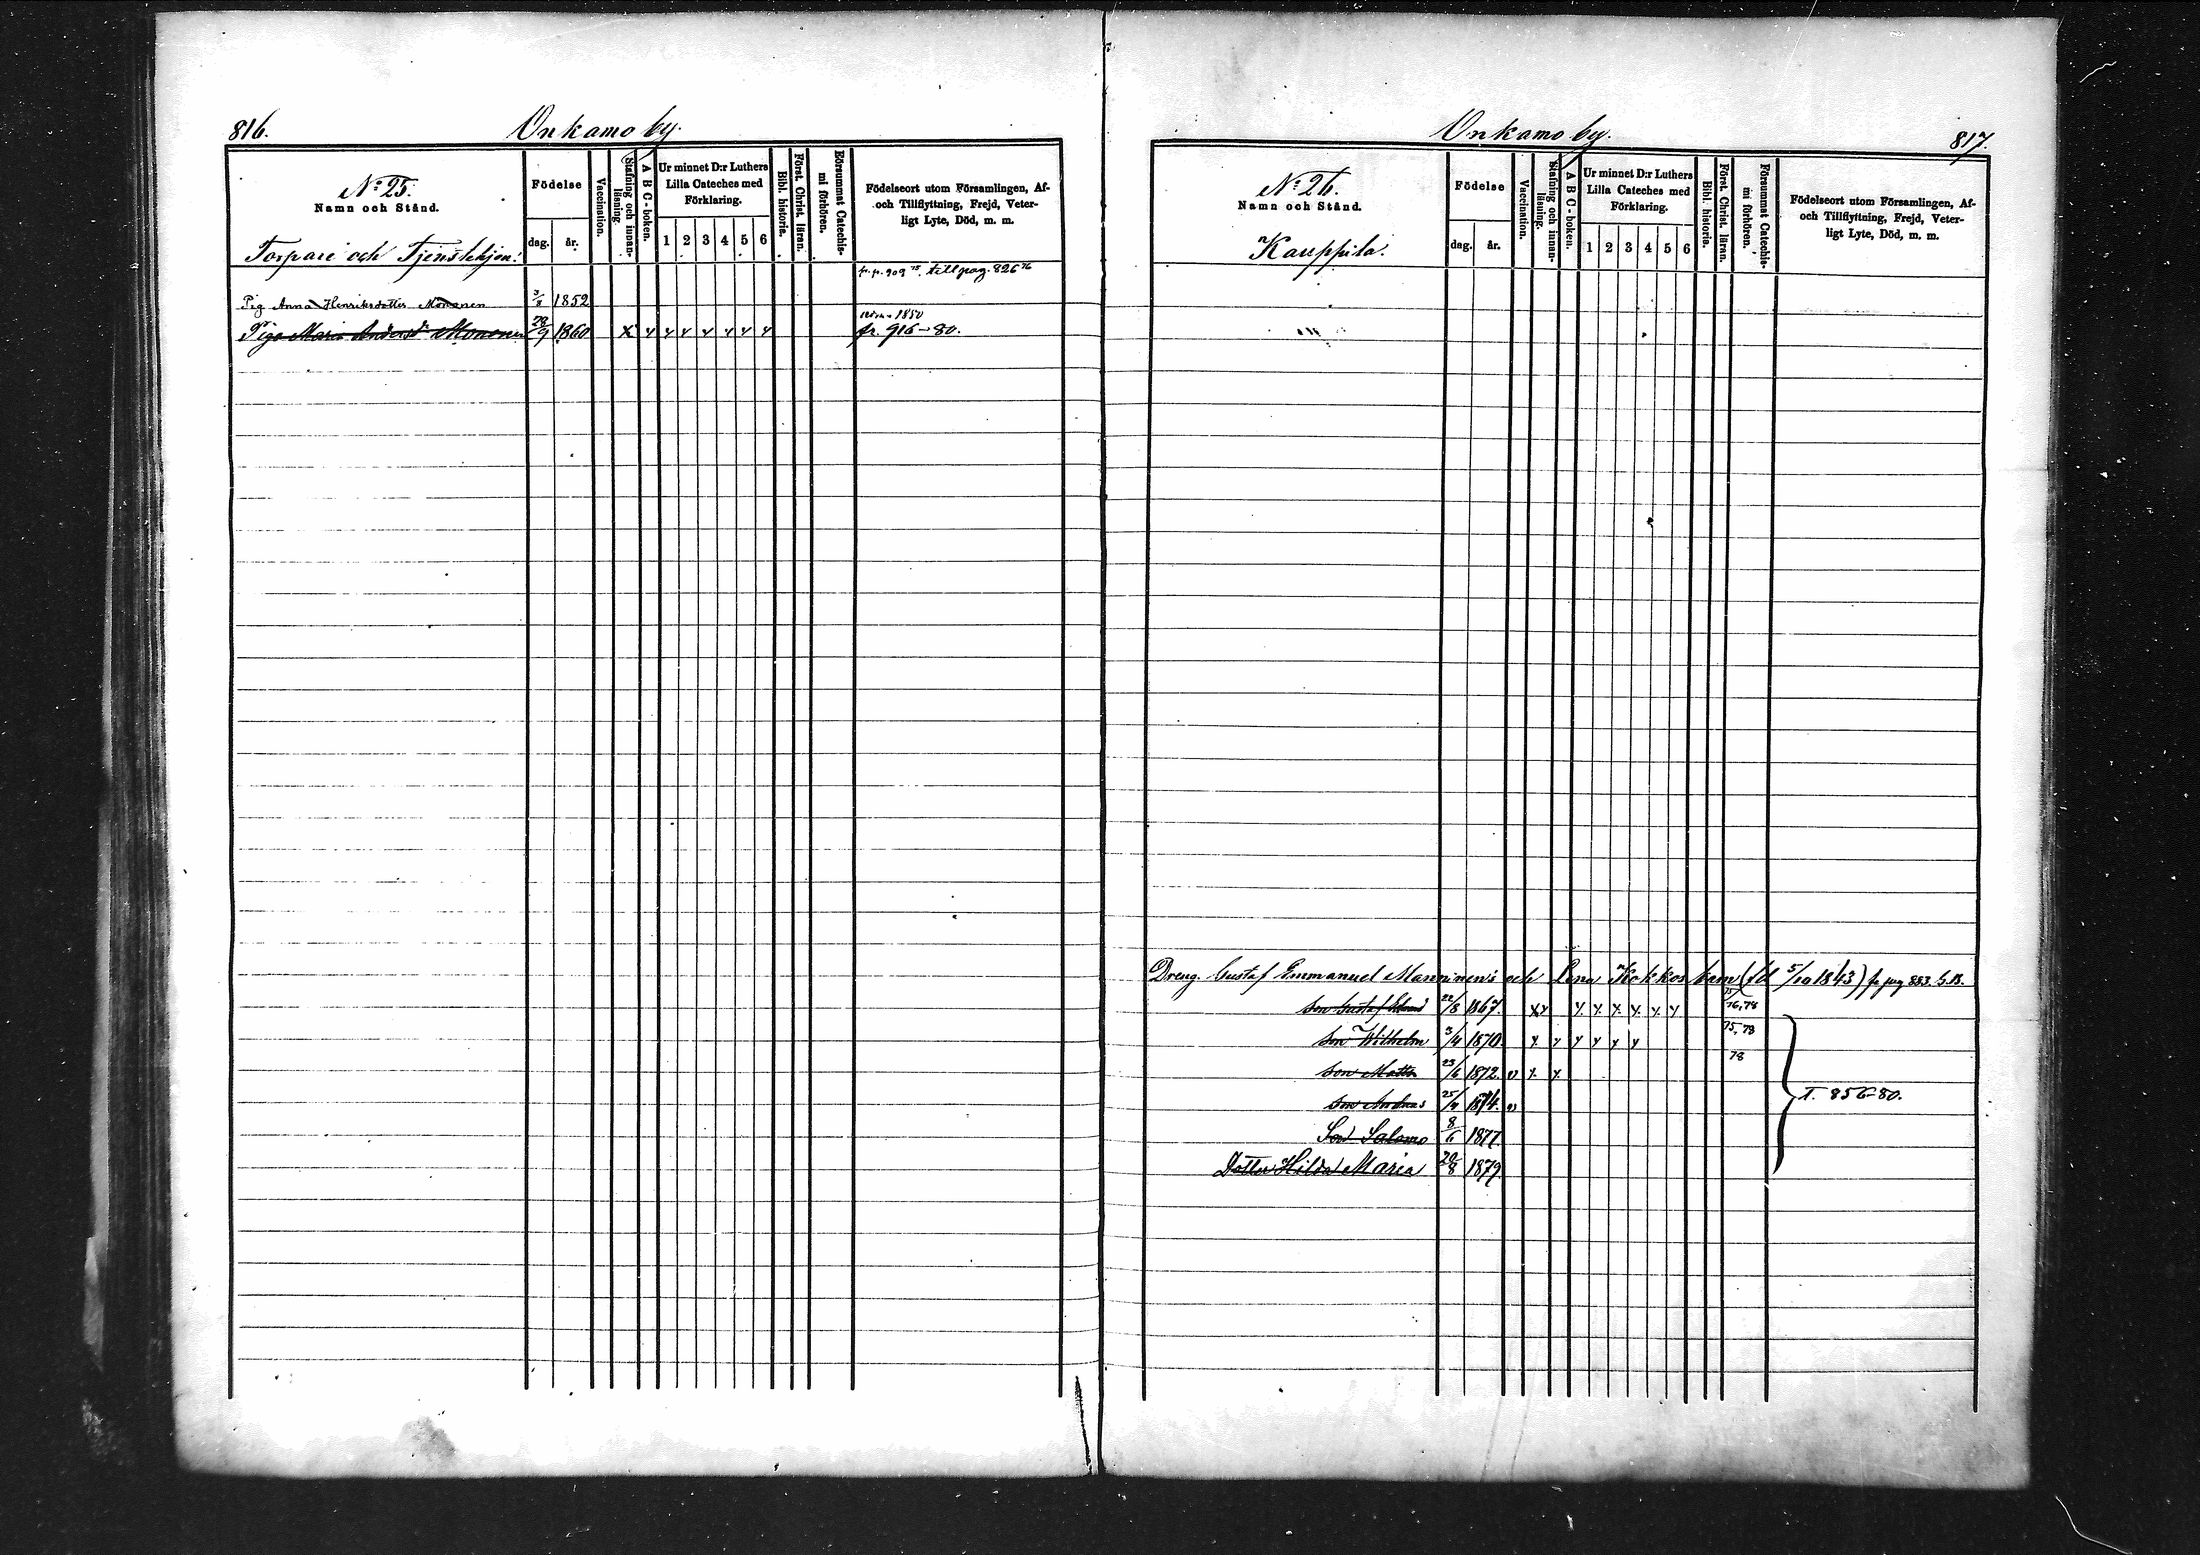 816.
Onkamo by.
No 25.
Namn och Stånd.
Torpare och Tjenstehjon.
Födelse
dag. år.
Vaccination.
Stafning och innanläsning.
A B C-boken.
Ur minnet D:r Luthers
Lilla Cateches med
Förklaring.
1 2 3 4 5 6
Bibl. historia.
Först. Christ. läran.
Försummat Catechismi förhören.
Födelseort utom Församlingen, Af-
och Tillflyttning, Frejd, Veter-
ligt Lyte, Död, m. m.
fr. p. 909 75. till pag. 826 76
Pig Anna Henriksdotter Mononen 3/8 1852
Piga Maria Andersdr Mononen 20/9 1860 x y y y y y y y fr. 916-80.
Onkamo by.
817.
No 26.
Namn och Stånd.
Kauppila.
Födelse
dag. år.
Vaccination.
Stafning och innanläsning.
A B C-boken.
Ur minnet D:r Luthers
Lilla Cateches med
Förklaring.
1 2 3 4 5 6
Bibl. historia.
Först. Christ. läran.
Försummat Catechismi förhören.
Födelseort utom Församlingen, Af-
och Tillflyttning, Frejd, Veter-
ligt Lyte, Död, m. m.
Dreng. Gustaf Emmanuel Manninen's och Lena Kokkos barn (fd 5/10 1843) fr pag 883. S.B.
son Gustaf 22/8 1867. x y y y y y y y 76, 78
son Wilhelm 3/4 1870. y y y y y y 75, 78
son Matts 23/6 1872. v y y 78
son Andreas 25/4 1874. v
T. 856-80.
Son Salomo 8/6 1877
Dotter Hilda Maria 20/8 1879